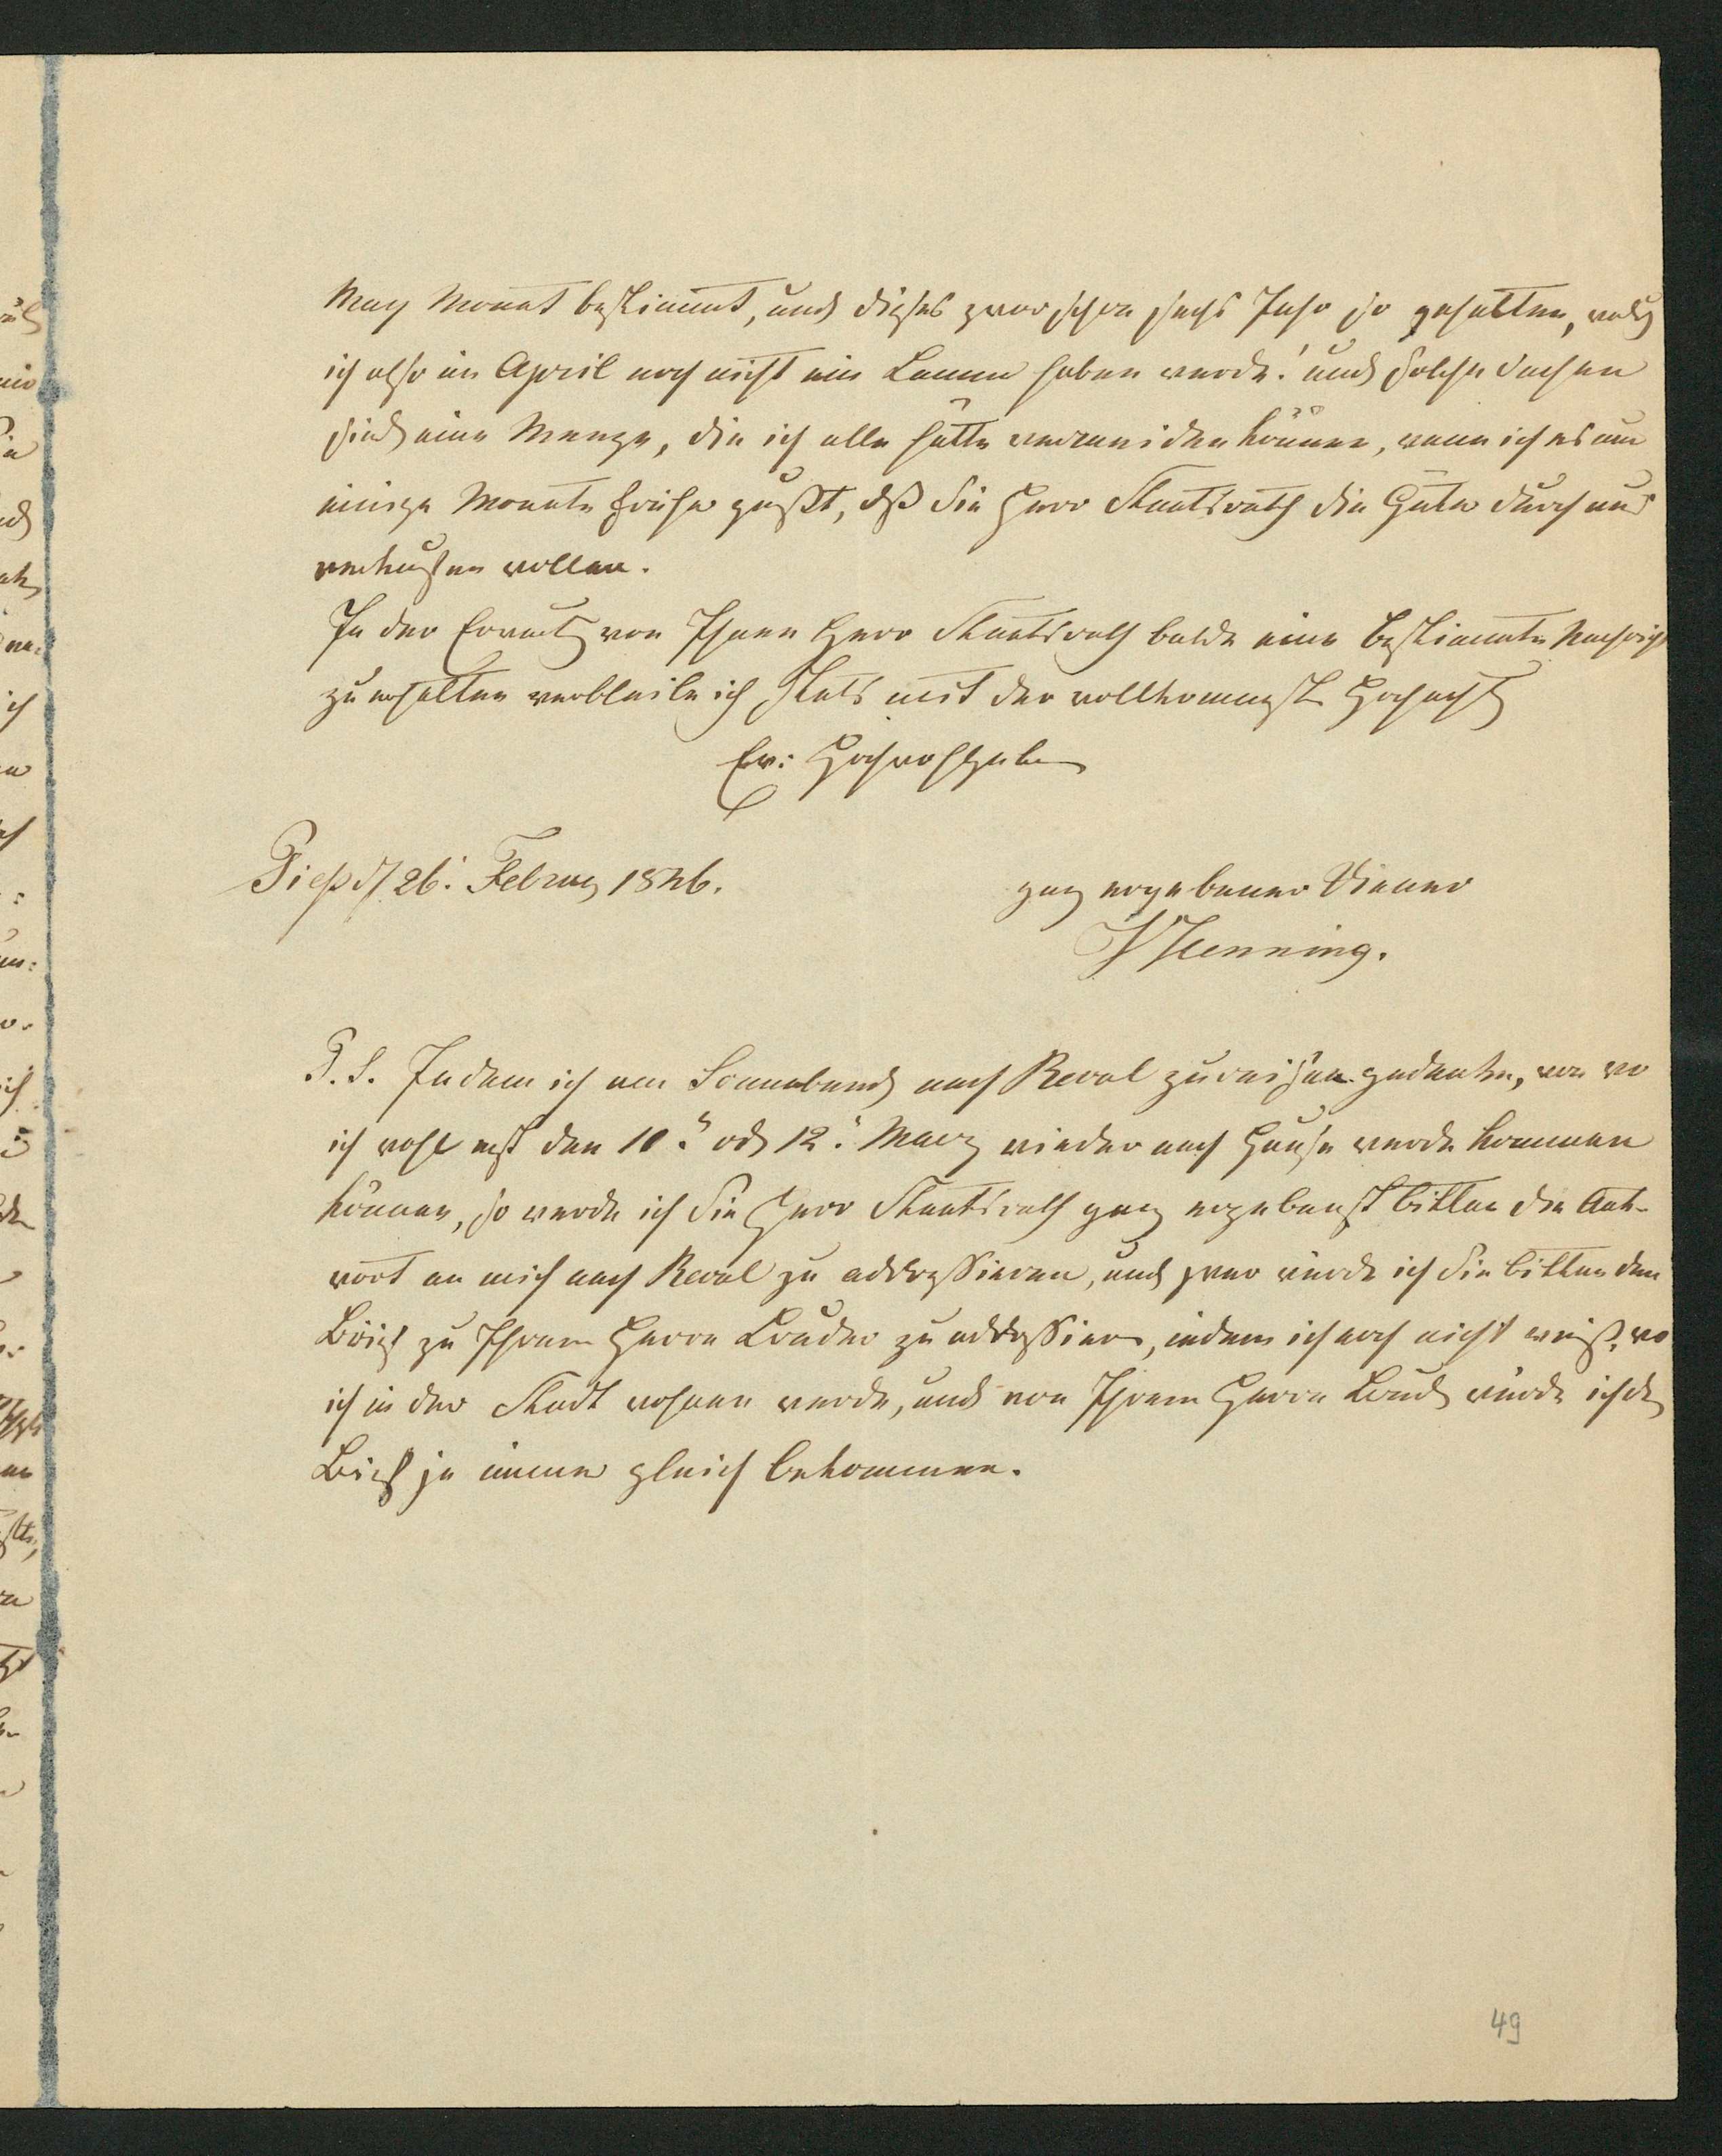 May Monat bestimmt, und dieses zwar schon sechs Jahr so gehalten,
ich also im April noch nicht ein Lamm haben werde! und solche Sachen
sind eine Menge, die ich alle hätte vermeiden können, wenn ich es um
einige Monate früher gewußt, daß Sie Herr Staatsrath die Güter durchaus
verkaufen wollen.
In der Erwartg von Ihnen Herr Staatsrath balde eine bestimmte Nachricht
zu erhalten verbleibe ich stets mit der vollkommenst Hochacht
Ew: Hochwohlgeb
Piep d 26. Februar 1846.
ganz ergebener Diener
Henning.
P. S. Indem ich am Sonnabend nach Reval zu reisen gedenke, von wo
ich wohl erst den 10. od 12. Maerz wieder nach Hause werde kommen
können, so werde ich Sie Herr Staatsrath ganz ergebenst bitten die Ant-
wort an mich nach Reval zu addressieren, und zwar würde ich Sie bitten den
Brief zu Ihrem Herrn Bruder zu addressieren, indem ich noch nicht weiß, wo
ich in der Stadt wohnen werde, und von Ihrem Herrn Brud würde ich d
Brief ja immer gleich bekommen.
49